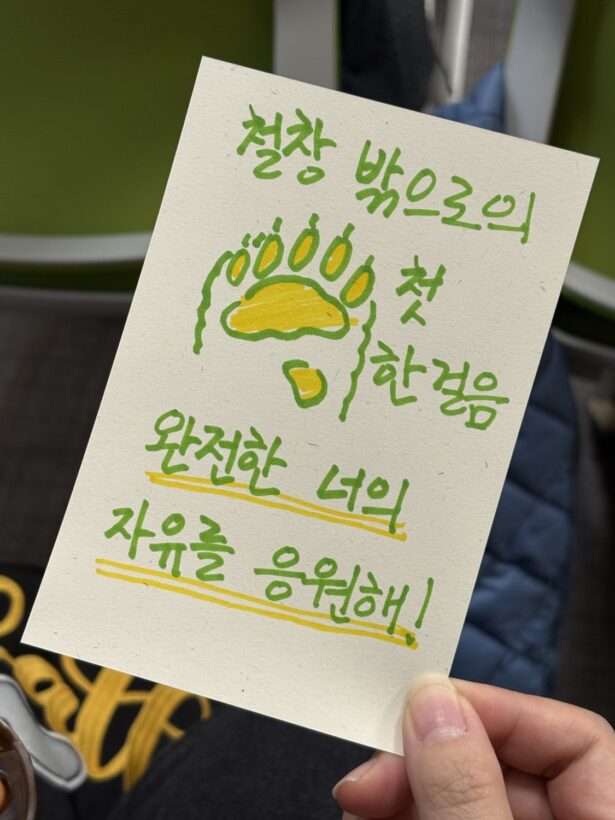 철창 밖으로의
첫
한 걸음
완전한 너의
자유를 응원해!